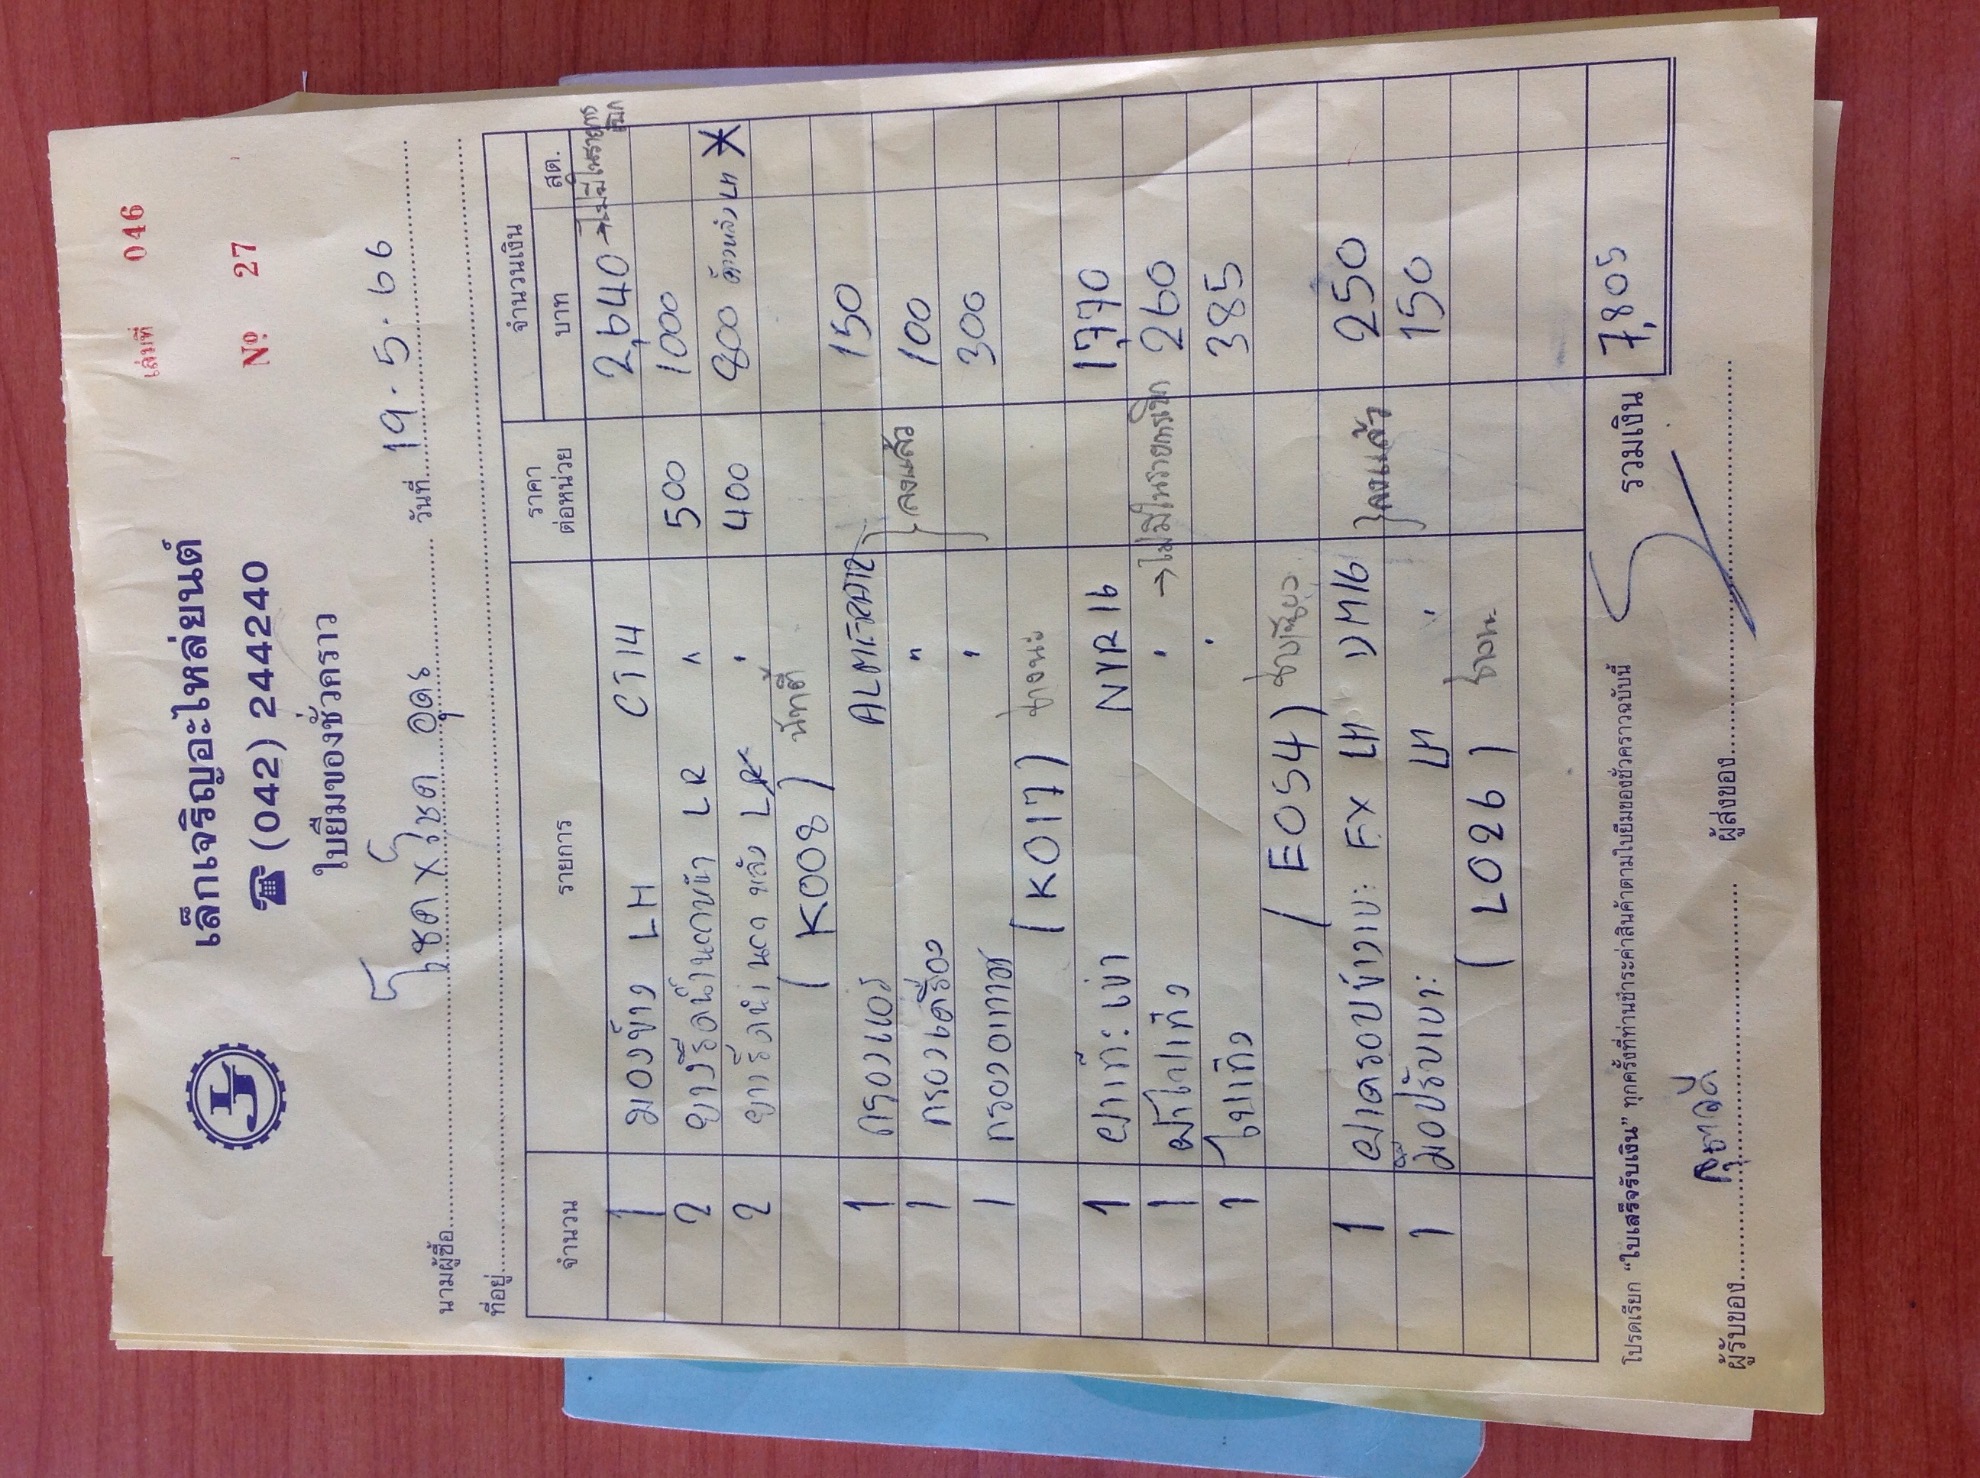 เล่มที่ 046
เล็กเจริญอะไหล่ยนต์
☎ (042) 244240
Nº 27
ใบยืมของชั่วคราว
นามผู้ซื้อ โชค x โชค อุดร วันที่ 19.5.66
ที่อยู่
จำนวน รายการ ราคาต่อหน่วย จำนวนเงิน
บาท สต.
1 มองข้าง LH CT14 2,640 → ไม่มีในรายการเบิก
2 ยางรีดน้ำนอกหน้า LR " 500 1000
2 ยางรีดน้ำนอก หลัง LR " 400 800 ตัวหลัง LH
(K008)
1 กรองแอร์ 150
1 กรองเครื่อง " 100 ลงแล้ว
1 กรองอากาศ " 300
(K017)
1 ฝาเก๊ะเข่า NYR16 1,770
1 ฝาไฟเก๋ง " → ไม่มีในรายการเบิก 260
1 ไฟเก๋ง " 385
(E054)
1 ฝาครอบข้างเบาะ FX LH DM16 250
ลงแล้ว
1 มือปรับเบาะ LH " 150
(L026)
รวมเงิน 7,805
โปรดเรียก "ใบเสร็จรับเงิน" ทุกครั้งที่ท่านชำระค่าสินค้าตามใบยืมของชั่วคราวฉบับนี้
ผู้รับของ ผู้ส่งของ